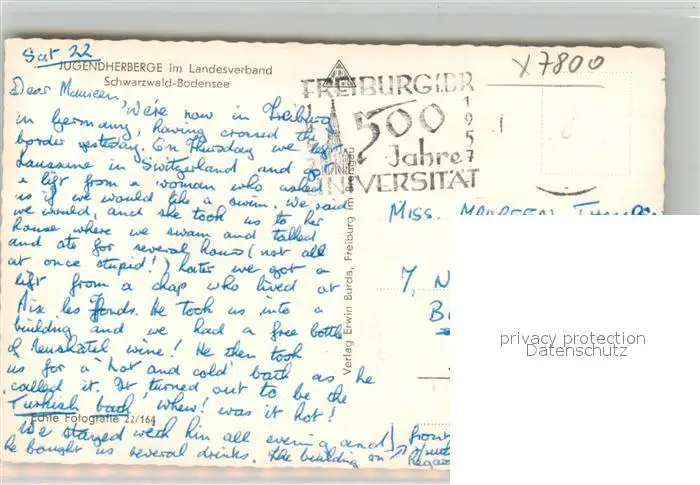 Sat 22
JUGENDHERBERGE im Landesverband
Schwarzwald-Bodensee
Dear Maureen,
We're now in Freiburg
in Germany, having crossed the
border yesterday. On Thursday we left
Laussane in Switzerland and got
a lift from a woman who asked
us if we would like a swim. We said
we would, and she took us to her
house where we swam and talked
and ate for several hours (not all
at once stupid!) Later we got a
lift from a chap who lived at
Aix les Fonds. He took us into a
building and we had a free bottle
of Neushatel wine! He then took
us for a 'hot and cold' bath as he
called it. It turned out to be the
Turkish bath, whew! was it hot!
Echte Fotografie 22/164
We stayed with him all evening and
he bought us several drinks. The building on
front
Verlag Erwin Burda, Freiburg im Breisgau
FREIBURG (BR
500
Jahre
UNIVERSITÄT
1457
1957
X7800
MISS. MAUREEN
7, N
B
privacy protection
Datenschutz